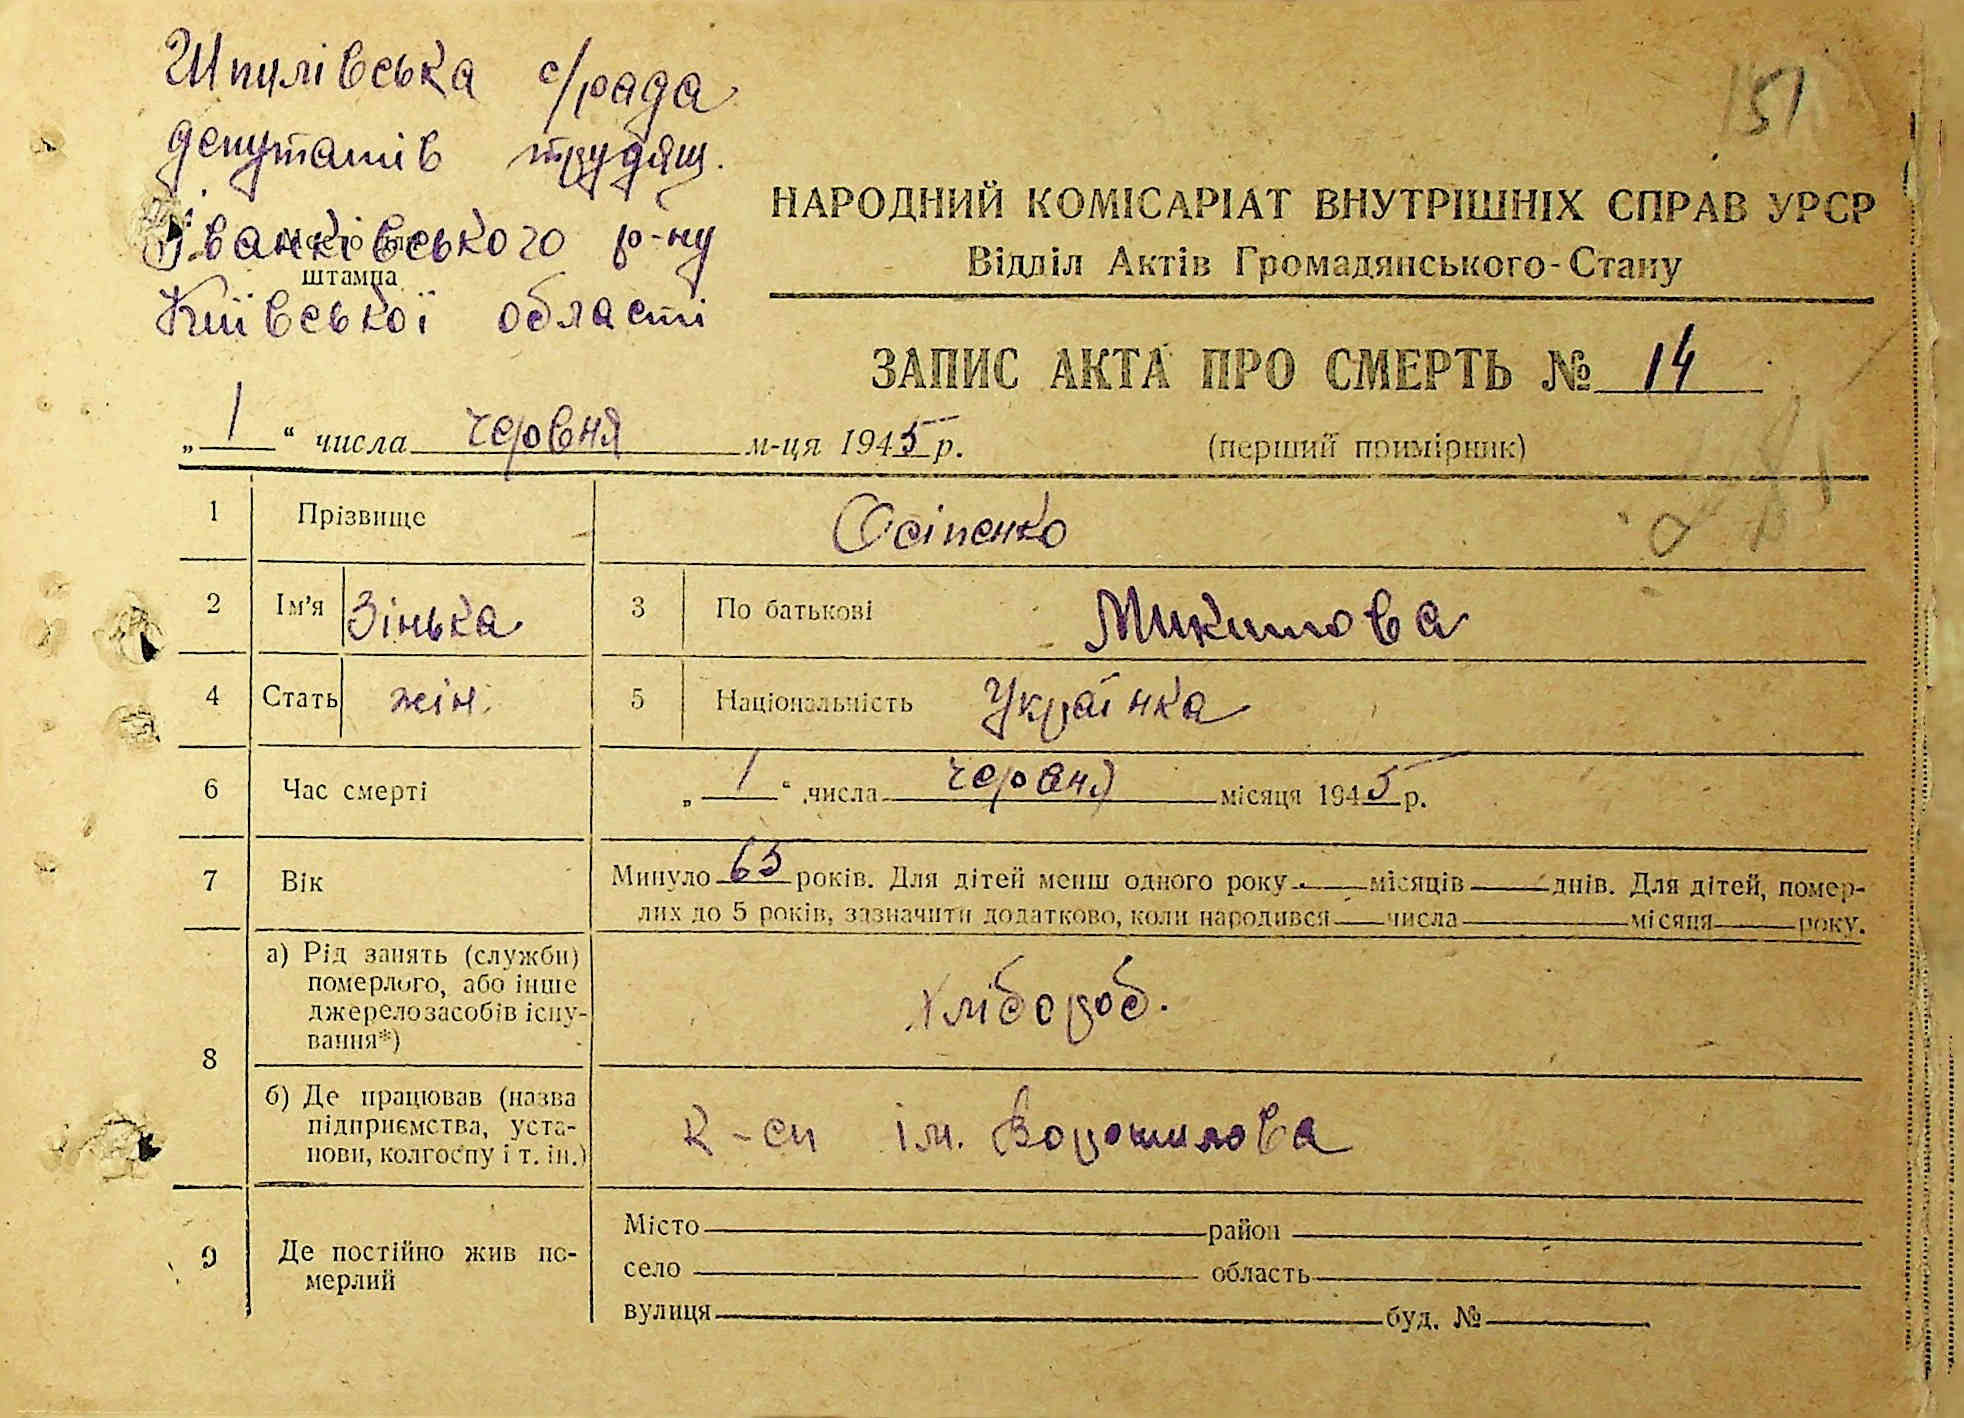 Шпилівська с/рада
депутатів трудящ.
Іванківського р-ну
штампа
Київської області
151
НАРОДНИЙ КОМІСАРІАТ ВНУТРІШНІХ СПРАВ УРСР
Відділ Актів Громадянського-Стану
ЗАПИС АКТА ПРО СМЕРТЬ № 14
„ 1 “ числа червня м-ця 1945 р.
(перший примірник)
1 Прізвище Осіпенко
2 Ім'я Зінька 3 По батькові Микитова
4 Стать жін. 5 Національність Українка
6 Час смерті „ 1 “ числа червня місяця 1945 р.
7 Вік Минуло 65 років. Для дітей менш одного року місяців днів. Для дітей, помер-
лих до 5 років, зазначити додатково, коли народився числа місяця року.
8 а) Рід занять (служби)
померлого, або інше
джерело засобів існу-
вання*)
хлібороб.
б) Де працював (назва
підприємства, уста-
нови, колгоспу і т. ін.)
к-сп ім. Ворошилова
9 Де постійно жив по-
мерлий
Місто район
село область
вулиця буд. №